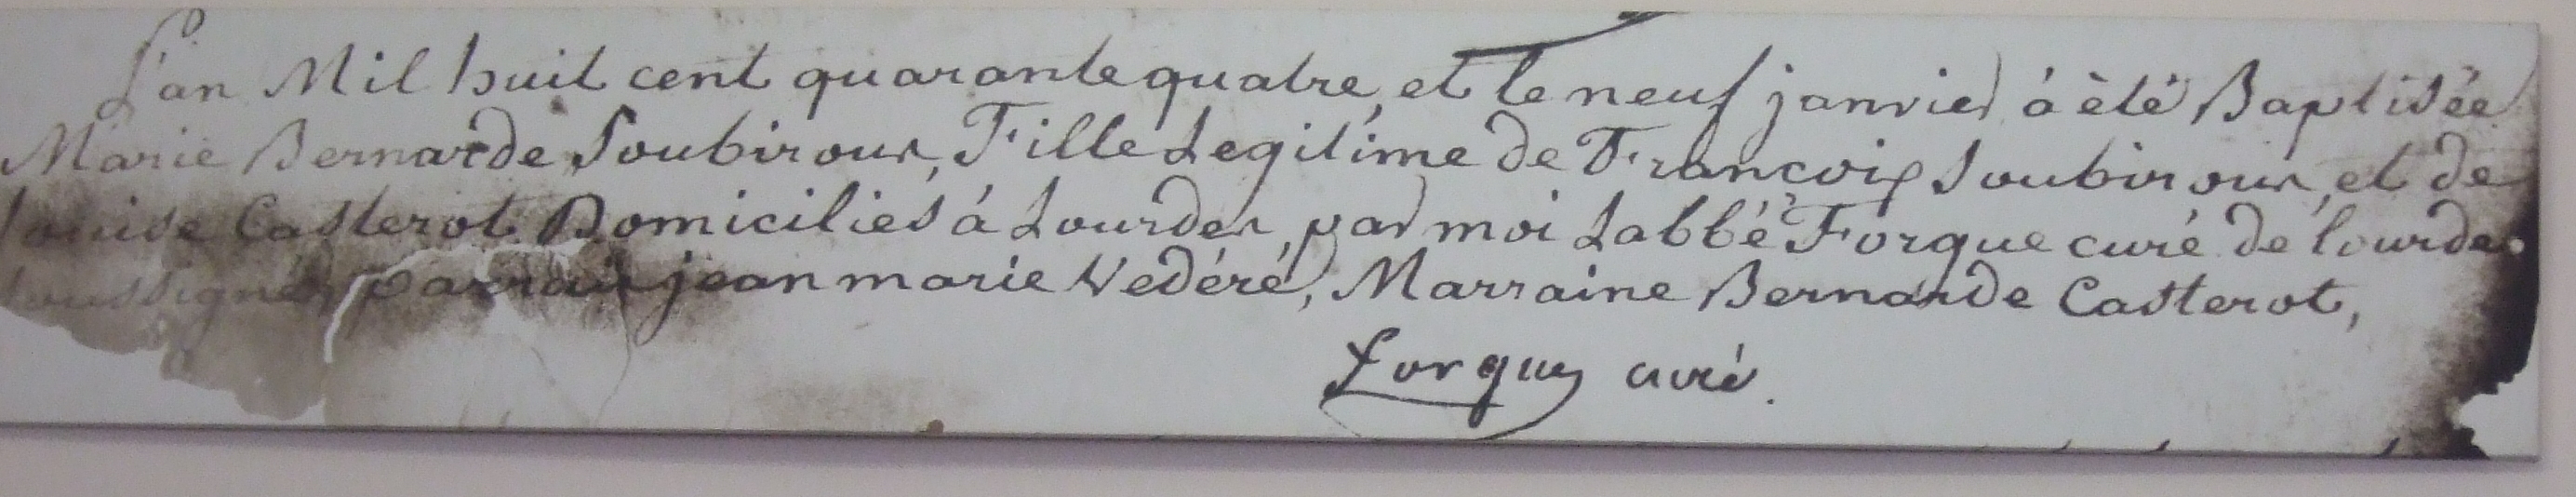 L'an Mil huit cent quarante quatre, et le neuf janvier à èté Baptisée
Marie Bernarde Soubirous, Fille Legitime de François Soubirous, et de
Louise Casterot Domiciliés à Lourdes, par moi Labbé Forgue curé de lourdes
soussigné, parrain jean marie Vedéré, Marraine Bernarde Casterot,
forgue curé.